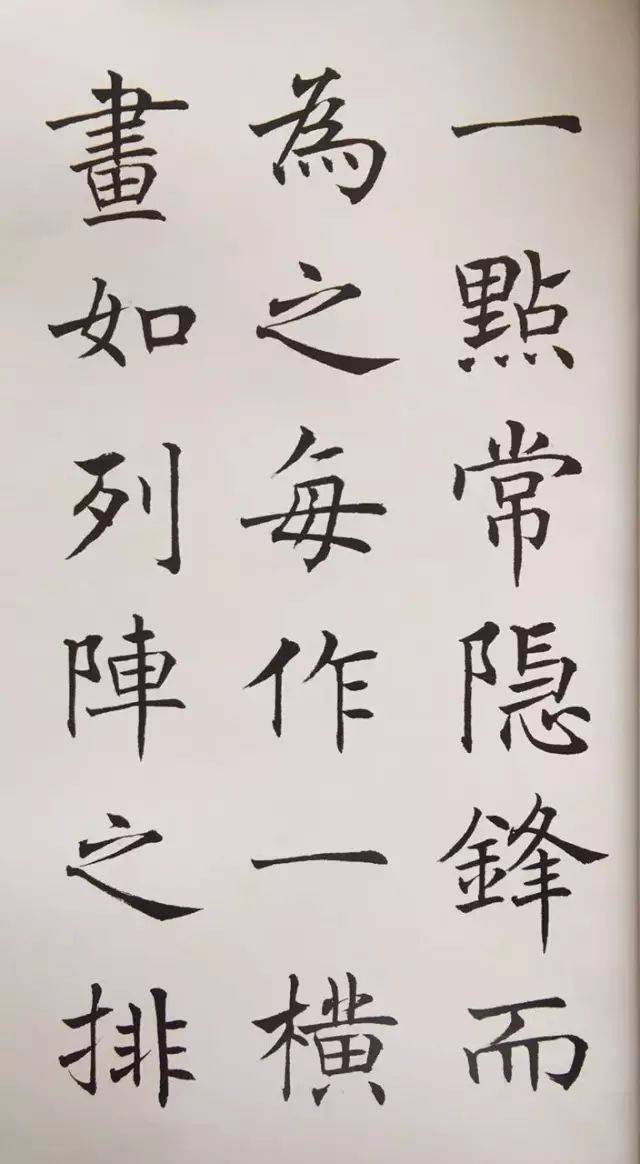 一點常隱鋒而
為之每作一横
畫如列陣之排